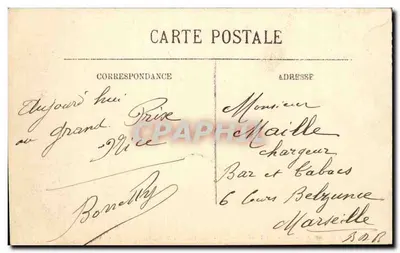 CARTE POSTALE
CORRESPONDANCE
Aujourd'hui
au grand Prix
Nice
ADRESSE
Monsieur
Maille
chargeur
Bar et Tabacs
6 Cours Belzunce
Marseille
B D R